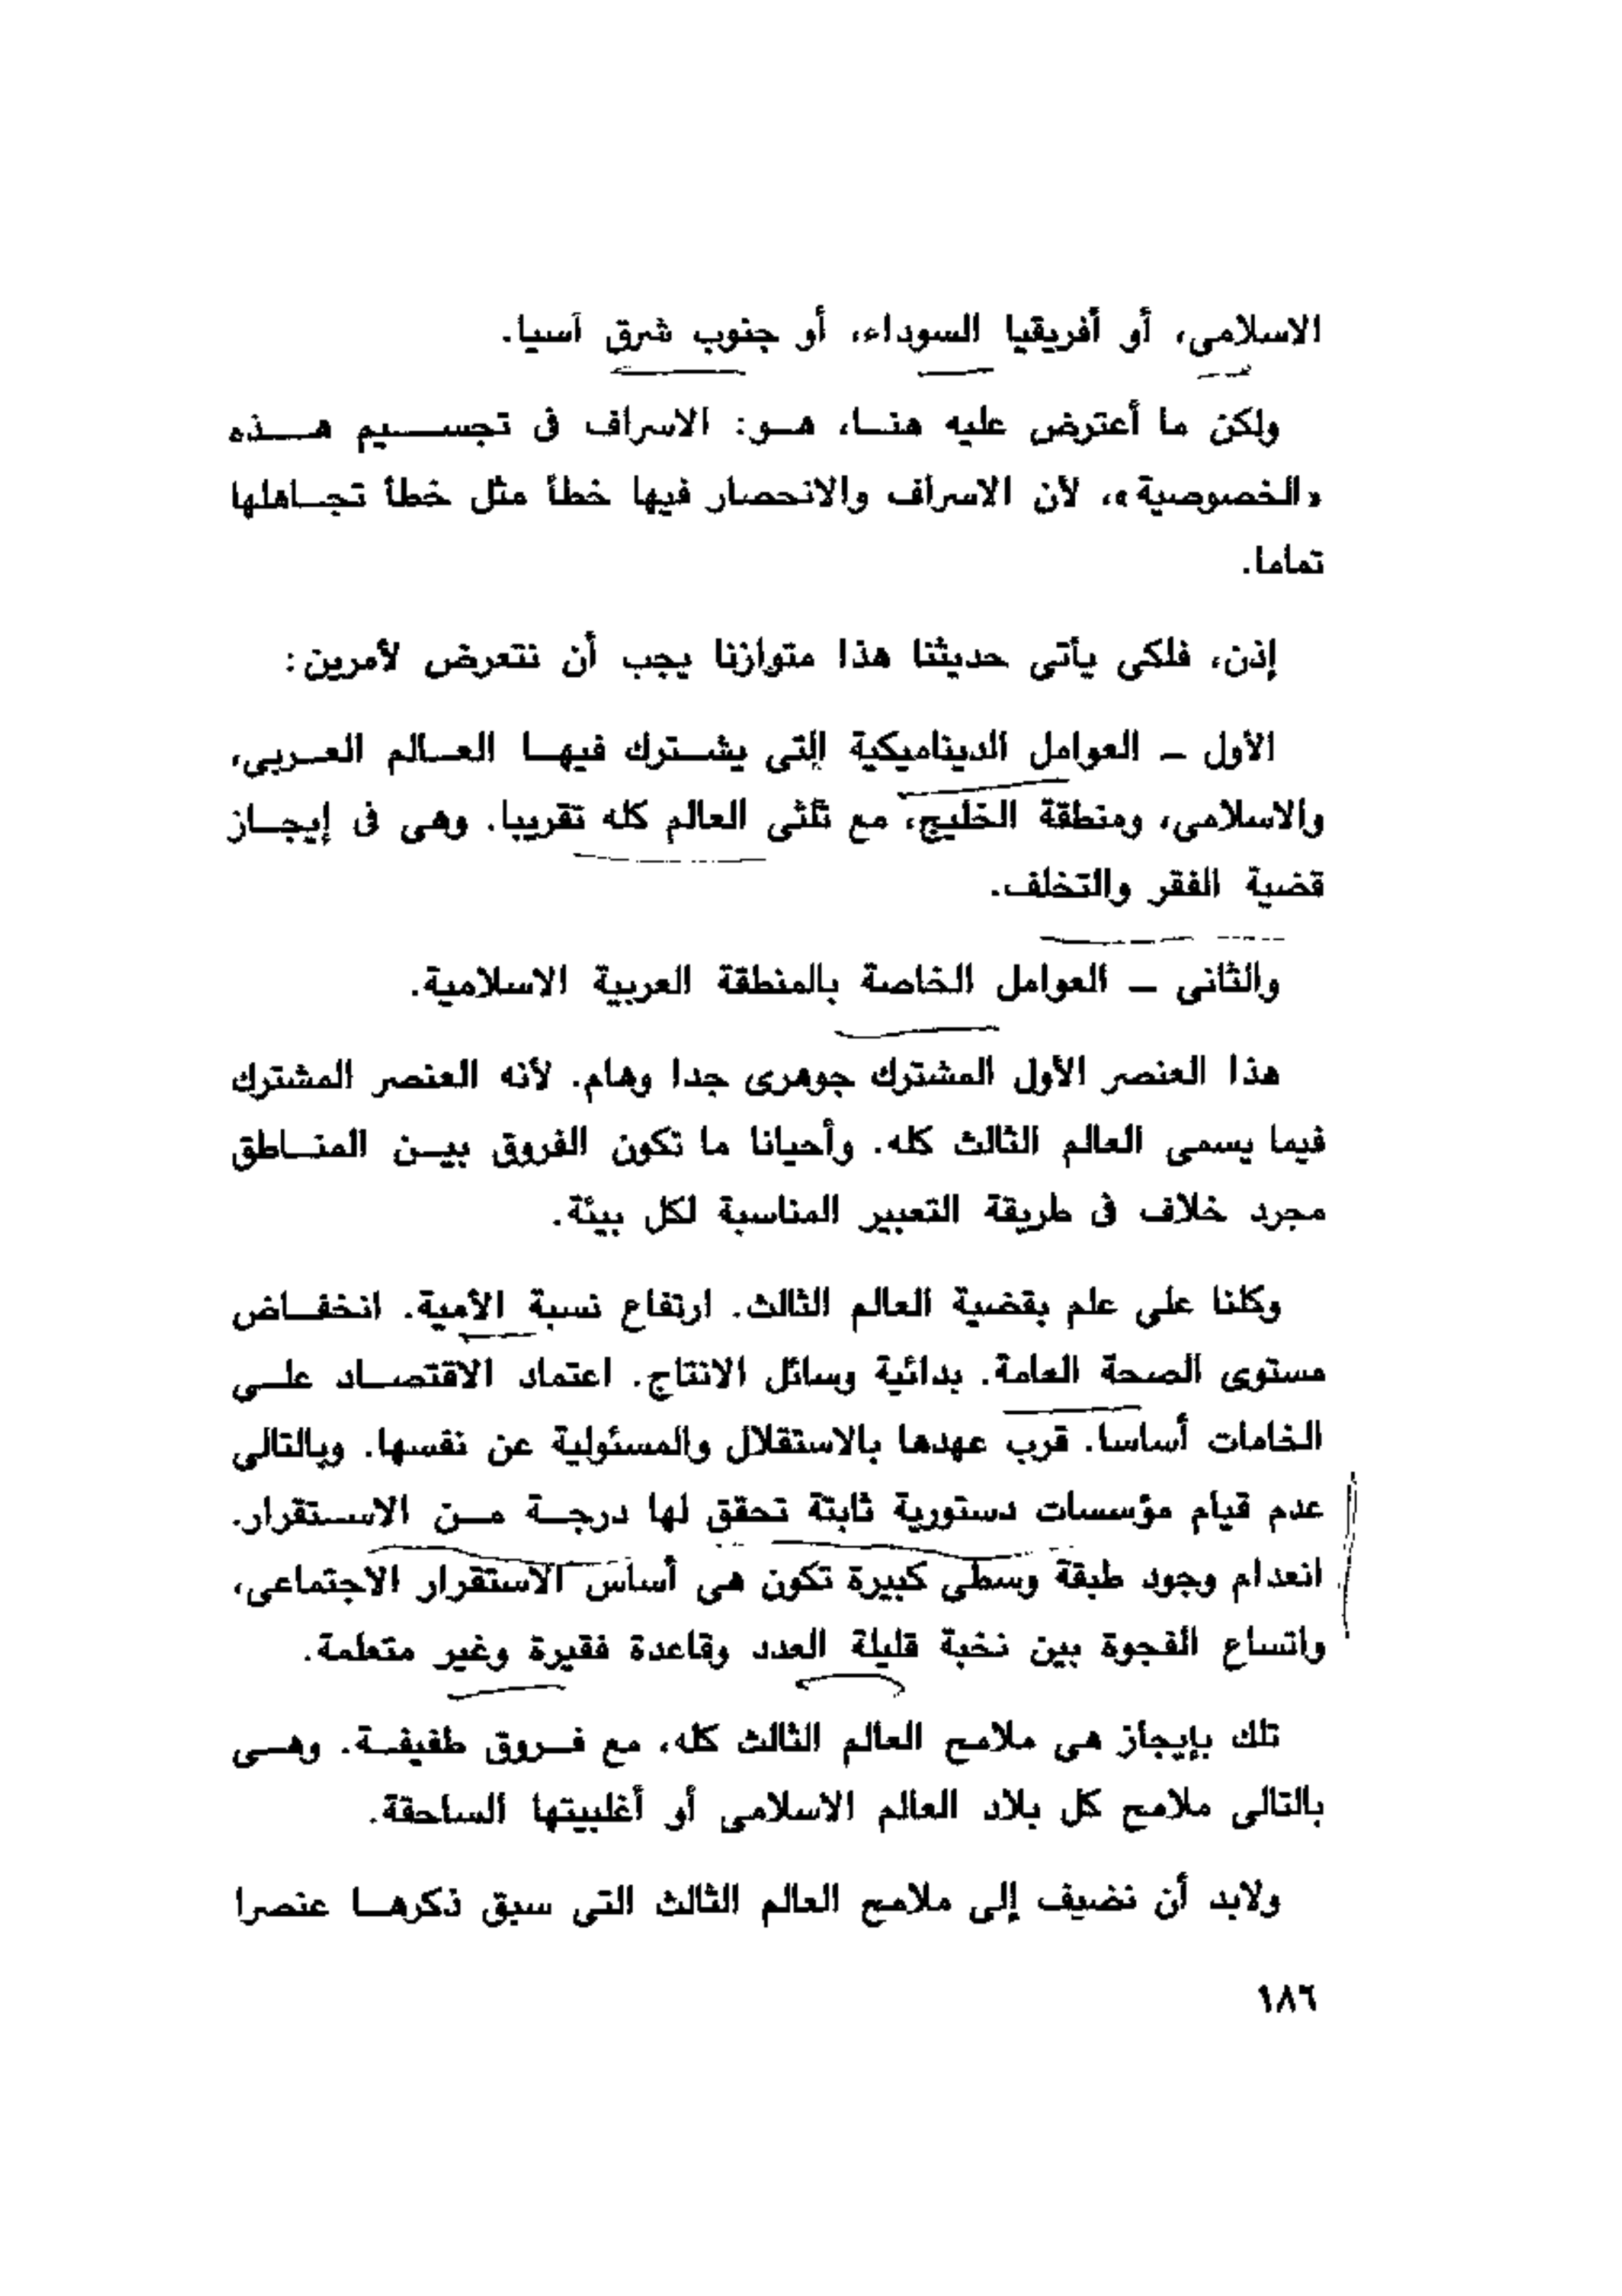 الاسلامى، أو أفريقيا السوداء، أو جنوب شرق آسيا.
ولكن ما أعترض عليه هنا، هو: الاسراف فى تجسيم هذه
«الخصوصية»، لأن الاسراف والانحصار فيها خطأ مثل خطأ تجاهلها
تماما.
إذن، فلكى يأتى حديثنا هذا متوازنا يجب أن نتعرض لأمرين:
الأول ــ العوامل الديناميكية التى يشترك فيها العالم العربى،
والاسلامى، ومنطقة الخليج، مع ثلثى العالم كله تقريبا. وهى فى إيجاز
قضية الفقر والتخلف.
والثانى ــ العوامل الخاصة بالمنطقة العربية الاسلامية.
هذا العنصر الأول المشترك جوهرى جدا وهام. لأنه العنصر المشترك
فيما يسمى العالم الثالث كله. وأحيانا ما تكون الفروق بين المناطق
مجرد خلاف فى طريقة التعبير المناسبة لكل بيئة.
وكلنا على علم بقضية العالم الثالث. ارتفاع نسبة الأمية. انخفاض
مستوى الصحة العامة. بدائية وسائل الانتاج. اعتماد الاقتصاد على
الخامات أساسا. قرب عهدها بالاستقلال والمسئولية عن نفسها. وبالتالى
عدم قيام مؤسسات دستورية ثابتة تحقق لها درجة من الاستقرار.
انعدام وجود طبقة وسطى كبيرة تكون هى أساس الاستقرار الاجتماعى،
واتساع الفجوة بين نخبة قليلة العدد وقاعدة فقيرة وغير متعلمة.
تلك بإيجاز هى ملامح العالم الثالث كله، مع فروق طفيفة. وهى
بالتالى ملامح كل بلاد العالم الاسلامى أو أغلبيتها الساحقة.
ولابد أن نضيف إلى ملامح العالم الثالث التى سبق ذكرها عنصرا
١٨٦